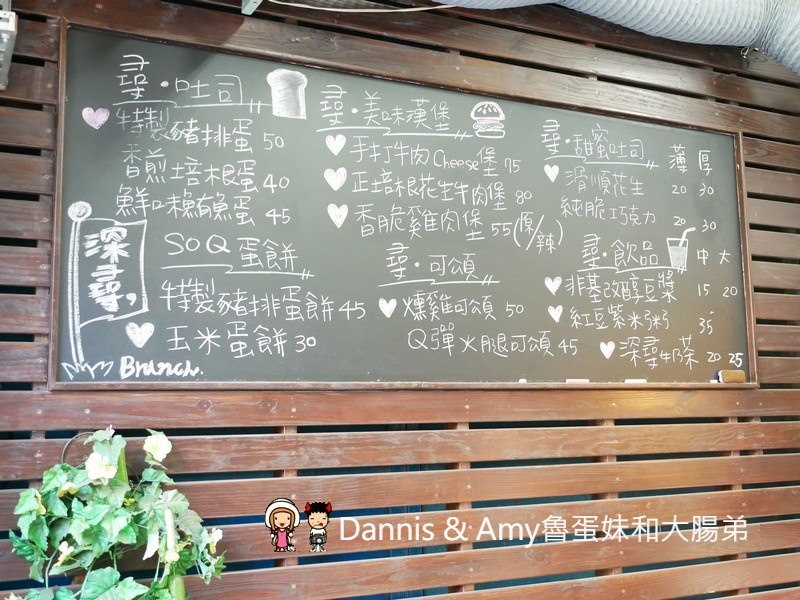 尋·吐司
特製豬排蛋 50
香煎培根蛋 40
鮮口味鮪魚蛋 45
深尋,
Brunch.
SOQ蛋餅
特製豬排蛋餅 45
玉米蛋餅 30
尋·美味漢堡
手打牛肉Cheese堡 75
正培根花生牛肉堡 80
香脆雞肉堡 55(原/辣)
尋·可頌
燻雞可頌 50
Q彈火腿可頌 45
尋·甜蜜吐司 薄 厚
滑順花生 20 30
純脆巧克力 20 30
尋·飲品 中 大
非基改醇豆漿 15 20
紅豆紫米粥 35
深尋牛奶茶 20 25
Dannis & Amy魯蛋妹和大腸弟